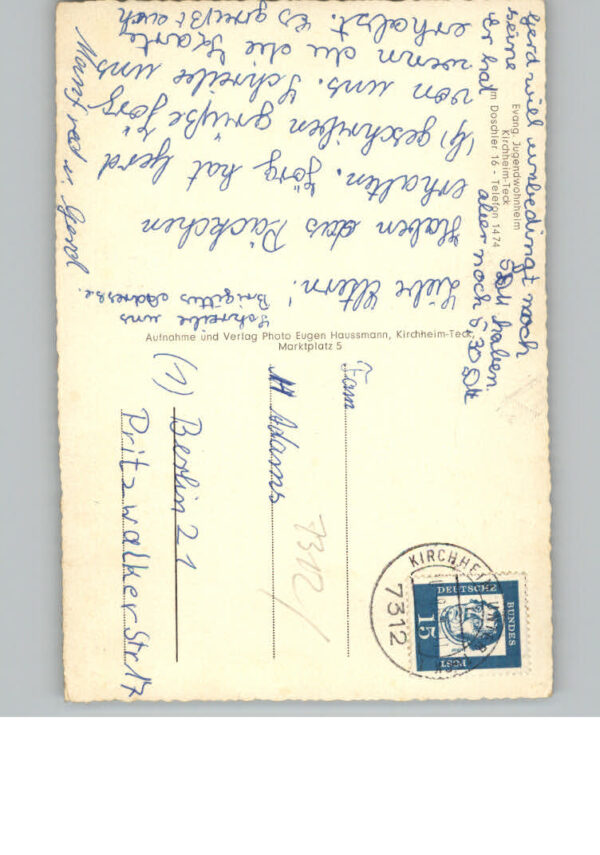 Evang. Jugendwohnheim
Kirchheim-Teck
Im Doschler 16 - Telefon 1474
Liebe Eltern!
Haben das Päckchen
erhalten. Jörg hat Gerd
geschrieben grüße Jörg
von uns. Schreibe uns
wenn du die Karte
erhälst. Es grüßt euch
Gerd
Schreibe uns
Brigittes Adresse.
Gerd will unbedingt noch
seine 5 DM haben.
Er hat aber noch 6,30 DM
Aufnahme und Verlag Photo Eugen Haussmann, Kirchheim-Teck,
Marktplatz 5
Fam
M Adams
(1) Berlin 21
Pritzwalkerstr 17
7312
KIRCHHEIM
7312
DEUTSCHE
BUNDES
POST
15